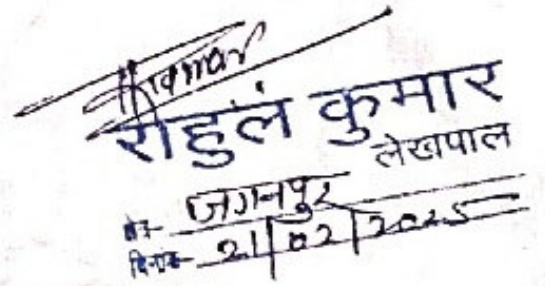 राहुल कुमार
लेखपाल
क्षेत्र- जगनपुर
दिनांक- 21/02/2025